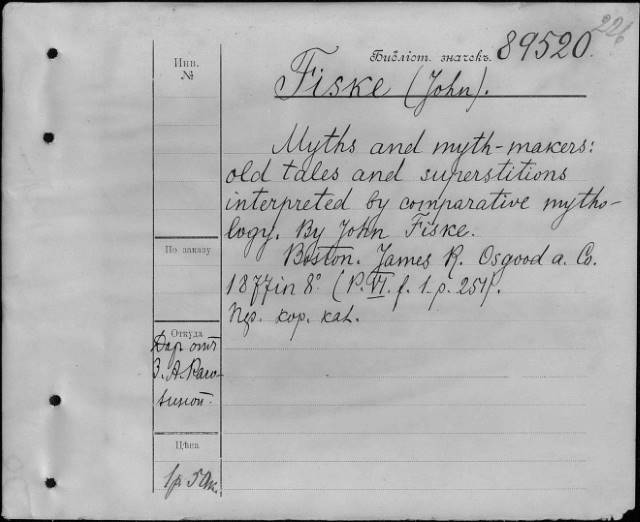 226
Инв. №
Библіот. значекъ 89520.
Fiske (John).
Myths and myth-makers:
old tales and superstitions
interpreted by comparative mytho-
logy. By John Fiske.
По заказу
Boston. James R. Osgood a. Co.
1877 in 8° (P. VI. f. 1. p. 251).
кор. кат.
Откуда
Даръ отъ
З. А. Раго-
зиной.
Цѣна
1 р 50 к.